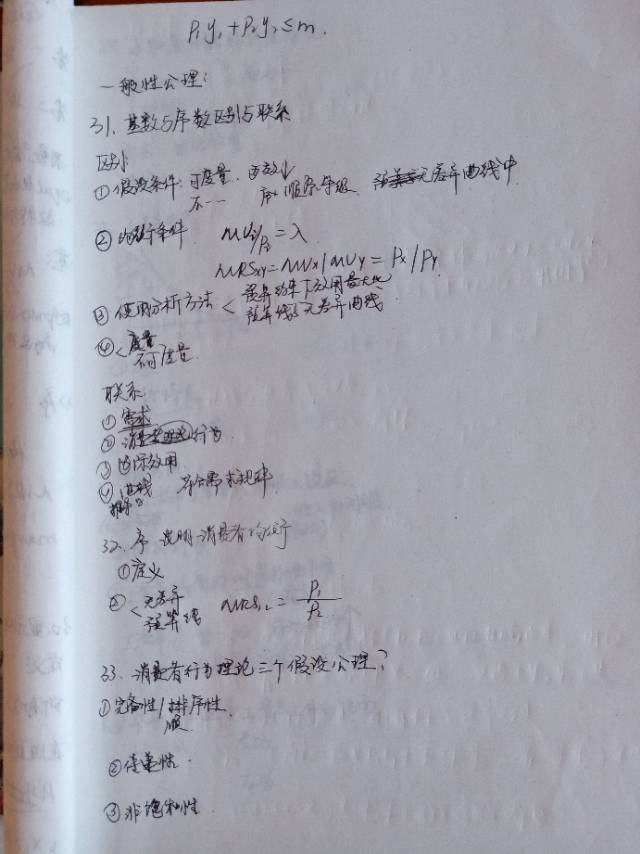 P₁y₁+P₂y₂≤m.
一般性公理:
31. 基数与序数区别与联系
区别:
①假设条件: 可度量. 
不一一 序: 顺序等级 无差异曲线中
②均衡条件 MUi/Pi=λ
MRSxy=MUx/MUy=Px/Py
③使用分析方法< 下效用最大化
预算线与无差异曲线
④<度量
不可度量.
联系
①需求
②消费 行为
③边际效用
④曲线 符合需求规律
推导
32、序 说明消费者均衡
①定义
②<无差异
预算线 MRS₁₂=P₁/P₂
33. 消费者行为理论三个假设公理?
①完备性/排序性.
顺
②传递性.
③非饱和性.